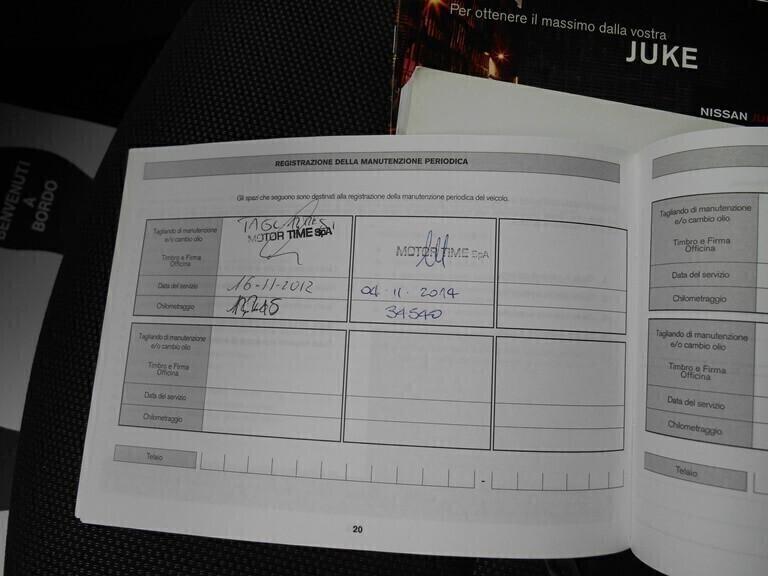 Per ottenere il massimo dalla vostra
JUKE
NISSAN JUKE
BENVENUTI
A
BORDO
REGISTRAZIONE DELLA MANUTENZIONE PERIODICA
Gli spazi che seguono sono destinati alla registrazione della manutenzione periodica del veicolo.
Tagliando di manutenzione
e/o cambio olio
Timbro e Firma
Officina
MOTOR TIME SpA
MOTOR TIME SpA
Data del servizio
16-11-2012
04-11-2014
Chilometraggio
34540
Tagliando di manutenzione
e/o cambio olio
Timbro e Firma
Officina
Data del servizio
Chilometraggio
Telaio
-
20
Tagliando di manutenzione
e/o cambio olio
Timbro e Firma
Officina
Data del servizio
Chilometraggio
Tagliando di manutenzione
e/o cambio olio
Timbro e Firma
Officina
Data del servizio
Chilometraggio
Telaio